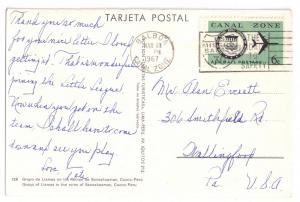 TARJETA POSTAL
Thank you so much
for your nice letter I love
getting it. That is wonderful
joining the Little League
you on the
team I shall have to come
to and see you play.
Love
BALBOA
MAR
PM
1967
CANAL ZONE
CANAL ZONE
AIR MAIL POSTAGE
SAFETY
Mr. Alan Everett
306 Smithfield Rd
Wallingford
Pa. U.S.A.
128 Grupo de Llamas en las Ruinas de Sacsahuaman, Cuzco-Perú
Group of Llamas in the ruins of Sacsahuaman, Cuzco-Peru